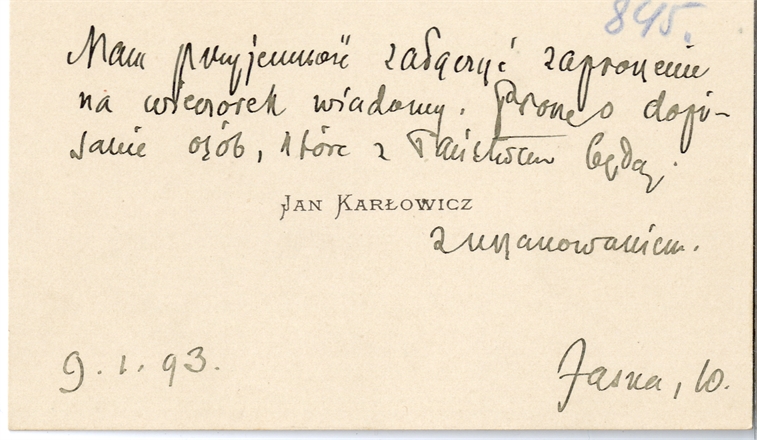 845.
Mam przyjemność załączyć zaproszenie
na wieczorek wiadomy. Proszę o dopi-
sanie osób, które z Państwem będą.
JAN KARŁOWICZ
z uszanowaniem.
9.1.93.
Jasna, 10.